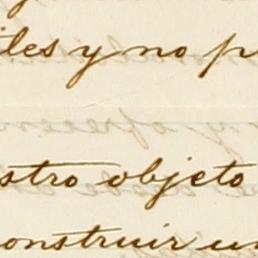 iles y no p
stro objeto
onstruir un